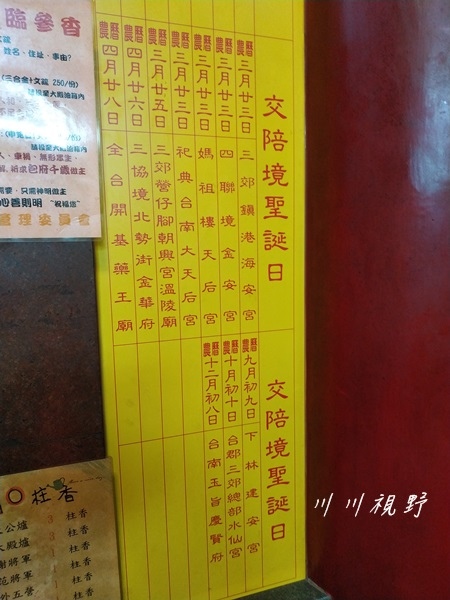 交陪境聖誕日
農曆三月廿三日 三郊鎮港海安宮
農曆三月廿三日 四聯境金安宮
農曆三月廿三日 媽祖樓天后宮
農曆三月廿三日 祀典台南大天后宮
農曆三月廿五日 三郊營仔腳朝興宮溫陵廟
農曆四月廿六日 三協境北勢街金華府
農曆四月廿八日 全台開基藥王廟
交陪境聖誕日
農曆九月初九日 下林建安宮
農曆十月初十日 台郡三郊總部水仙宮
農曆十二月初八日 台南玉旨慶賢府
臨參香
姓名、住址、事由?
管理委員會
柱香
川川視野